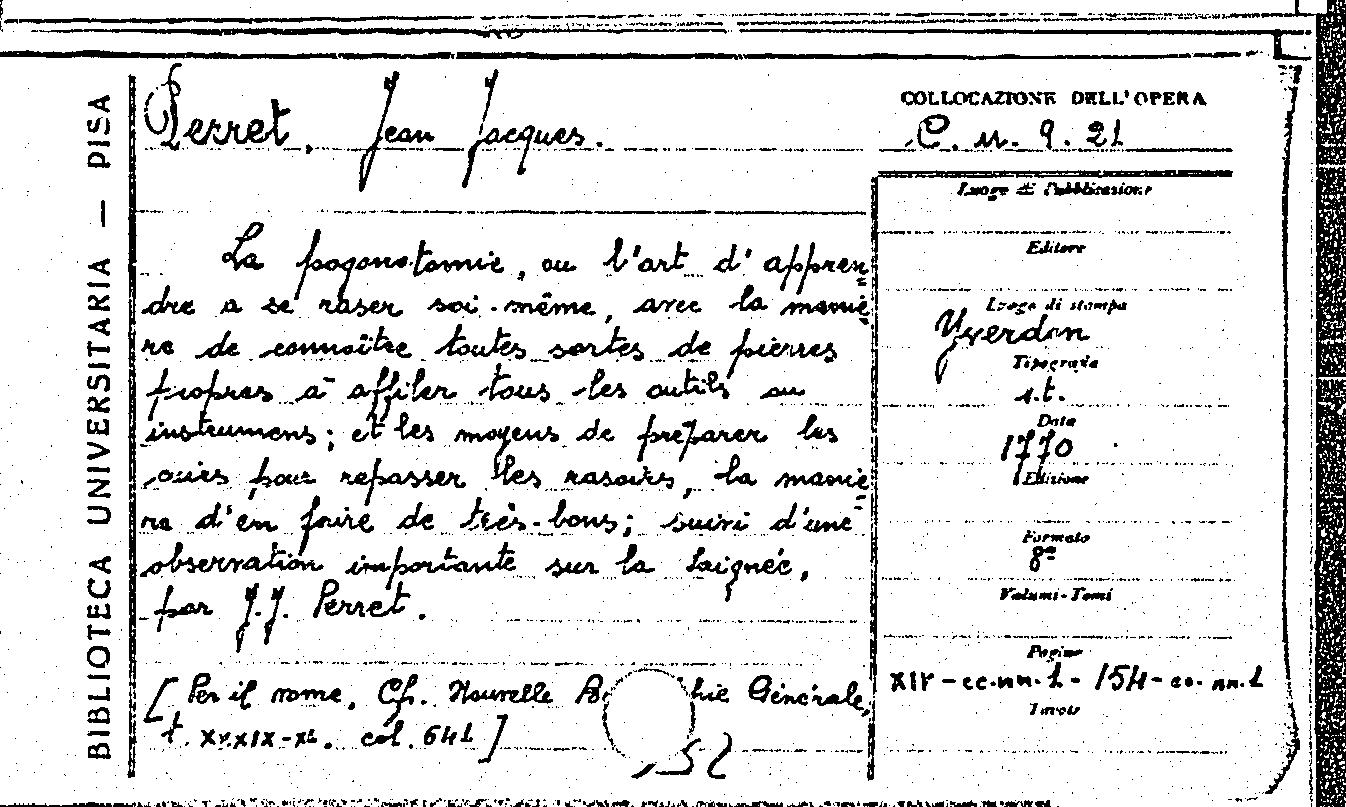 BIBLIOTECA UNIVERSITARIA — PISA
Perret, Jean Jacques.
COLLOCAZIONE DELL'OPERA
C. n. 9. 21
La pogonotomie, ou l'art d'appren
dre a se raser soi-même, avec la maniè
re de connoître toutes sortes de pierres
propres à affiler tous les outils ou
instrumens; et les moyens de préparer les
cuirs pour repasser les rasoirs, la maniè
re d'en faire de très-bons; suivi d'une
observation importante sur la saignée,
par J.J. Perret.
[Per il nome, Cfr. Nouvelle Générale,
t. col. 641]
52
Luogo di Pubblicazione
Editore
Luogo di stampa
Yverdon
Tipografia
s.t.
Data
1770
Edizione
Formato
8º
Volumi-Tomi
Pagine
XIV-cc.nn.1-154-cc.nn.1
Tavole